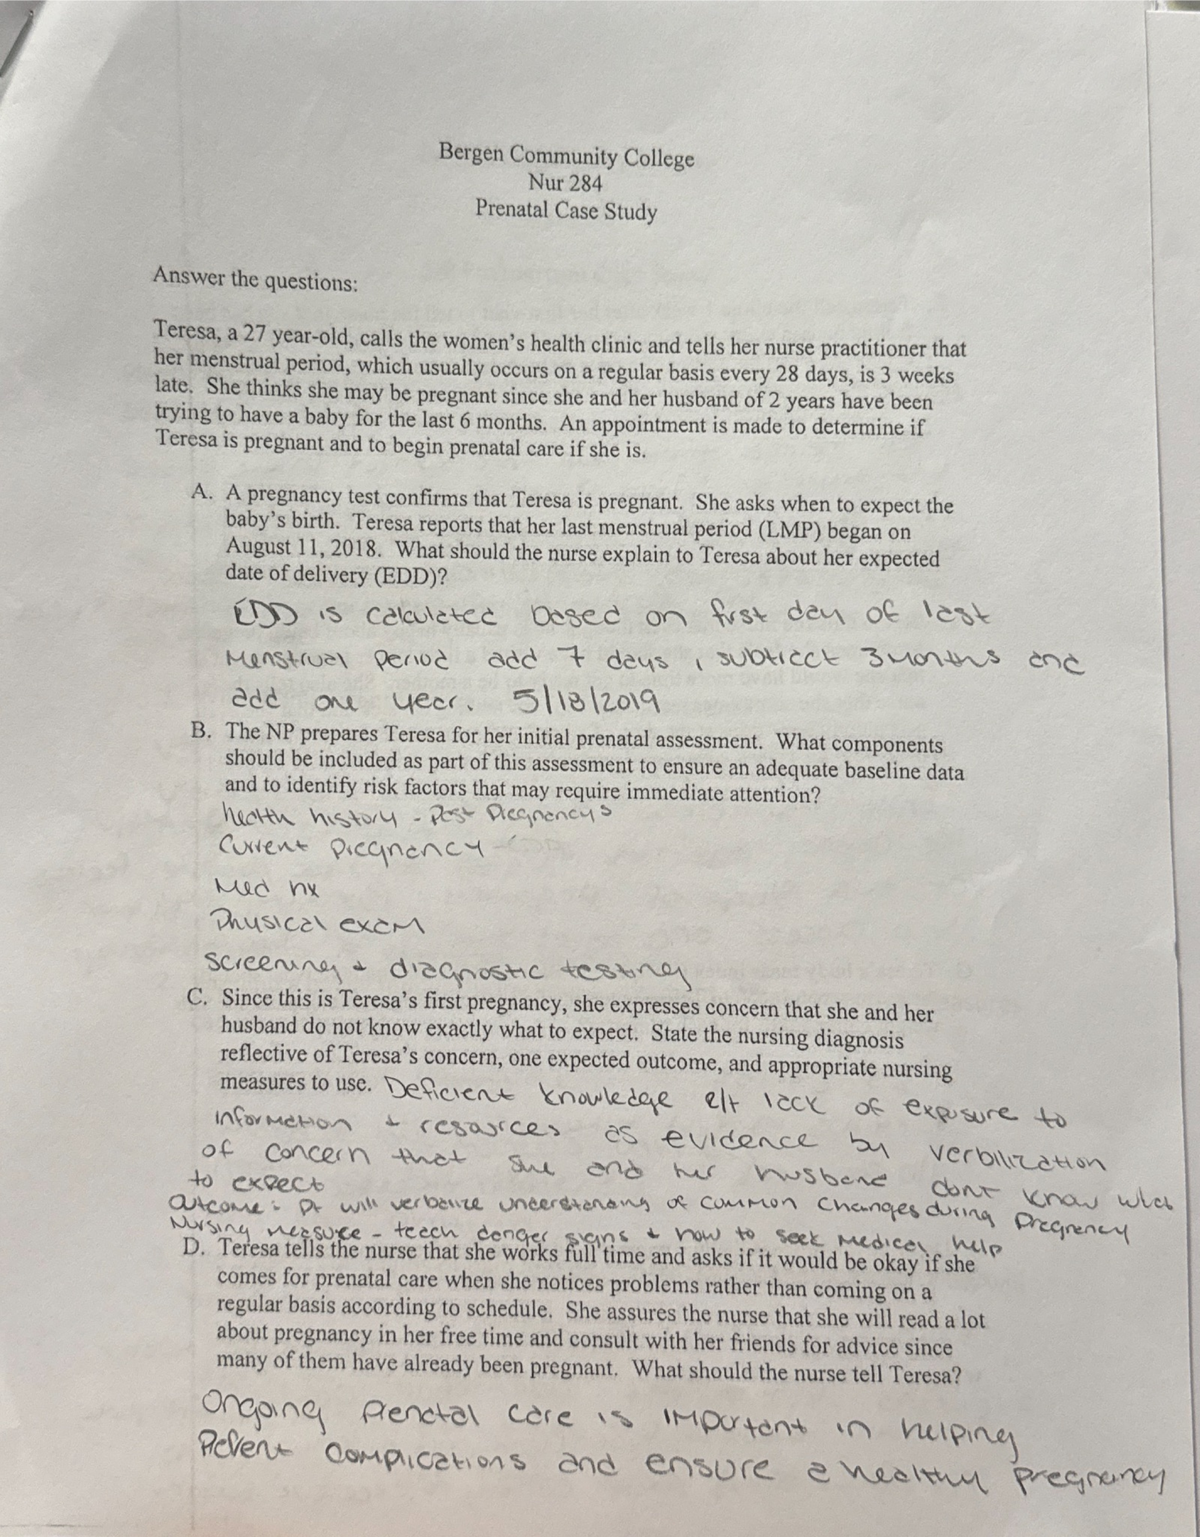 Bergen Community College
Nur 284
Prenatal Case Study
Answer the questions:
Teresa, a 27 year-old, calls the women's health clinic and tells her nurse practitioner that
her menstrual period, which usually occurs on a regular basis every 28 days, is 3 weeks
late. She thinks she may be pregnant since she and her husband of 2 years have been
trying to have a baby for the last 6 months. An appointment is made to determine if
Teresa is pregnant and to begin prenatal care if she is.
A. A pregnancy test confirms that Teresa is pregnant. She asks when to expect the
baby's birth. Teresa reports that her last menstrual period (LMP) began on
August 11, 2018. What should the nurse explain to Teresa about her expected
date of delivery (EDD)?
EDD is calculated based on first day of last
menstrual period add 7 days, subtract 3 months and
add one year. 5/18/2019
B. The NP prepares Teresa for her initial prenatal assessment. What components
should be included as part of this assessment to ensure an adequate baseline data
and to identify risk factors that may require immediate attention?
health history - Past Pregnancys
Current pregnancy
Med hx
Physical exam
screening + diagnostic testing
C. Since this is Teresa's first pregnancy, she expresses concern that she and her
husband do not know exactly what to expect. State the nursing diagnosis
reflective of Teresa's concern, one expected outcome, and appropriate nursing
measures to use. Deficient knowledge r/t lack of exposure to
information + resources as evidence by verbilization
of concern that she and her husband dont know what
to expect
Outcome: Pt will verbalize understanding of common changes during pregnancy
Nursing measure - teach danger signs + how to seek medical help
D. Teresa tells the nurse that she works full time and asks if it would be okay if she
comes for prenatal care when she notices problems rather than coming on a
regular basis according to schedule. She assures the nurse that she will read a lot
about pregnancy in her free time and consult with her friends for advice since
many of them have already been pregnant. What should the nurse tell Teresa?
Ongoing prenatal care is important in helping
Prevent complications and ensure a healthy pregnancy